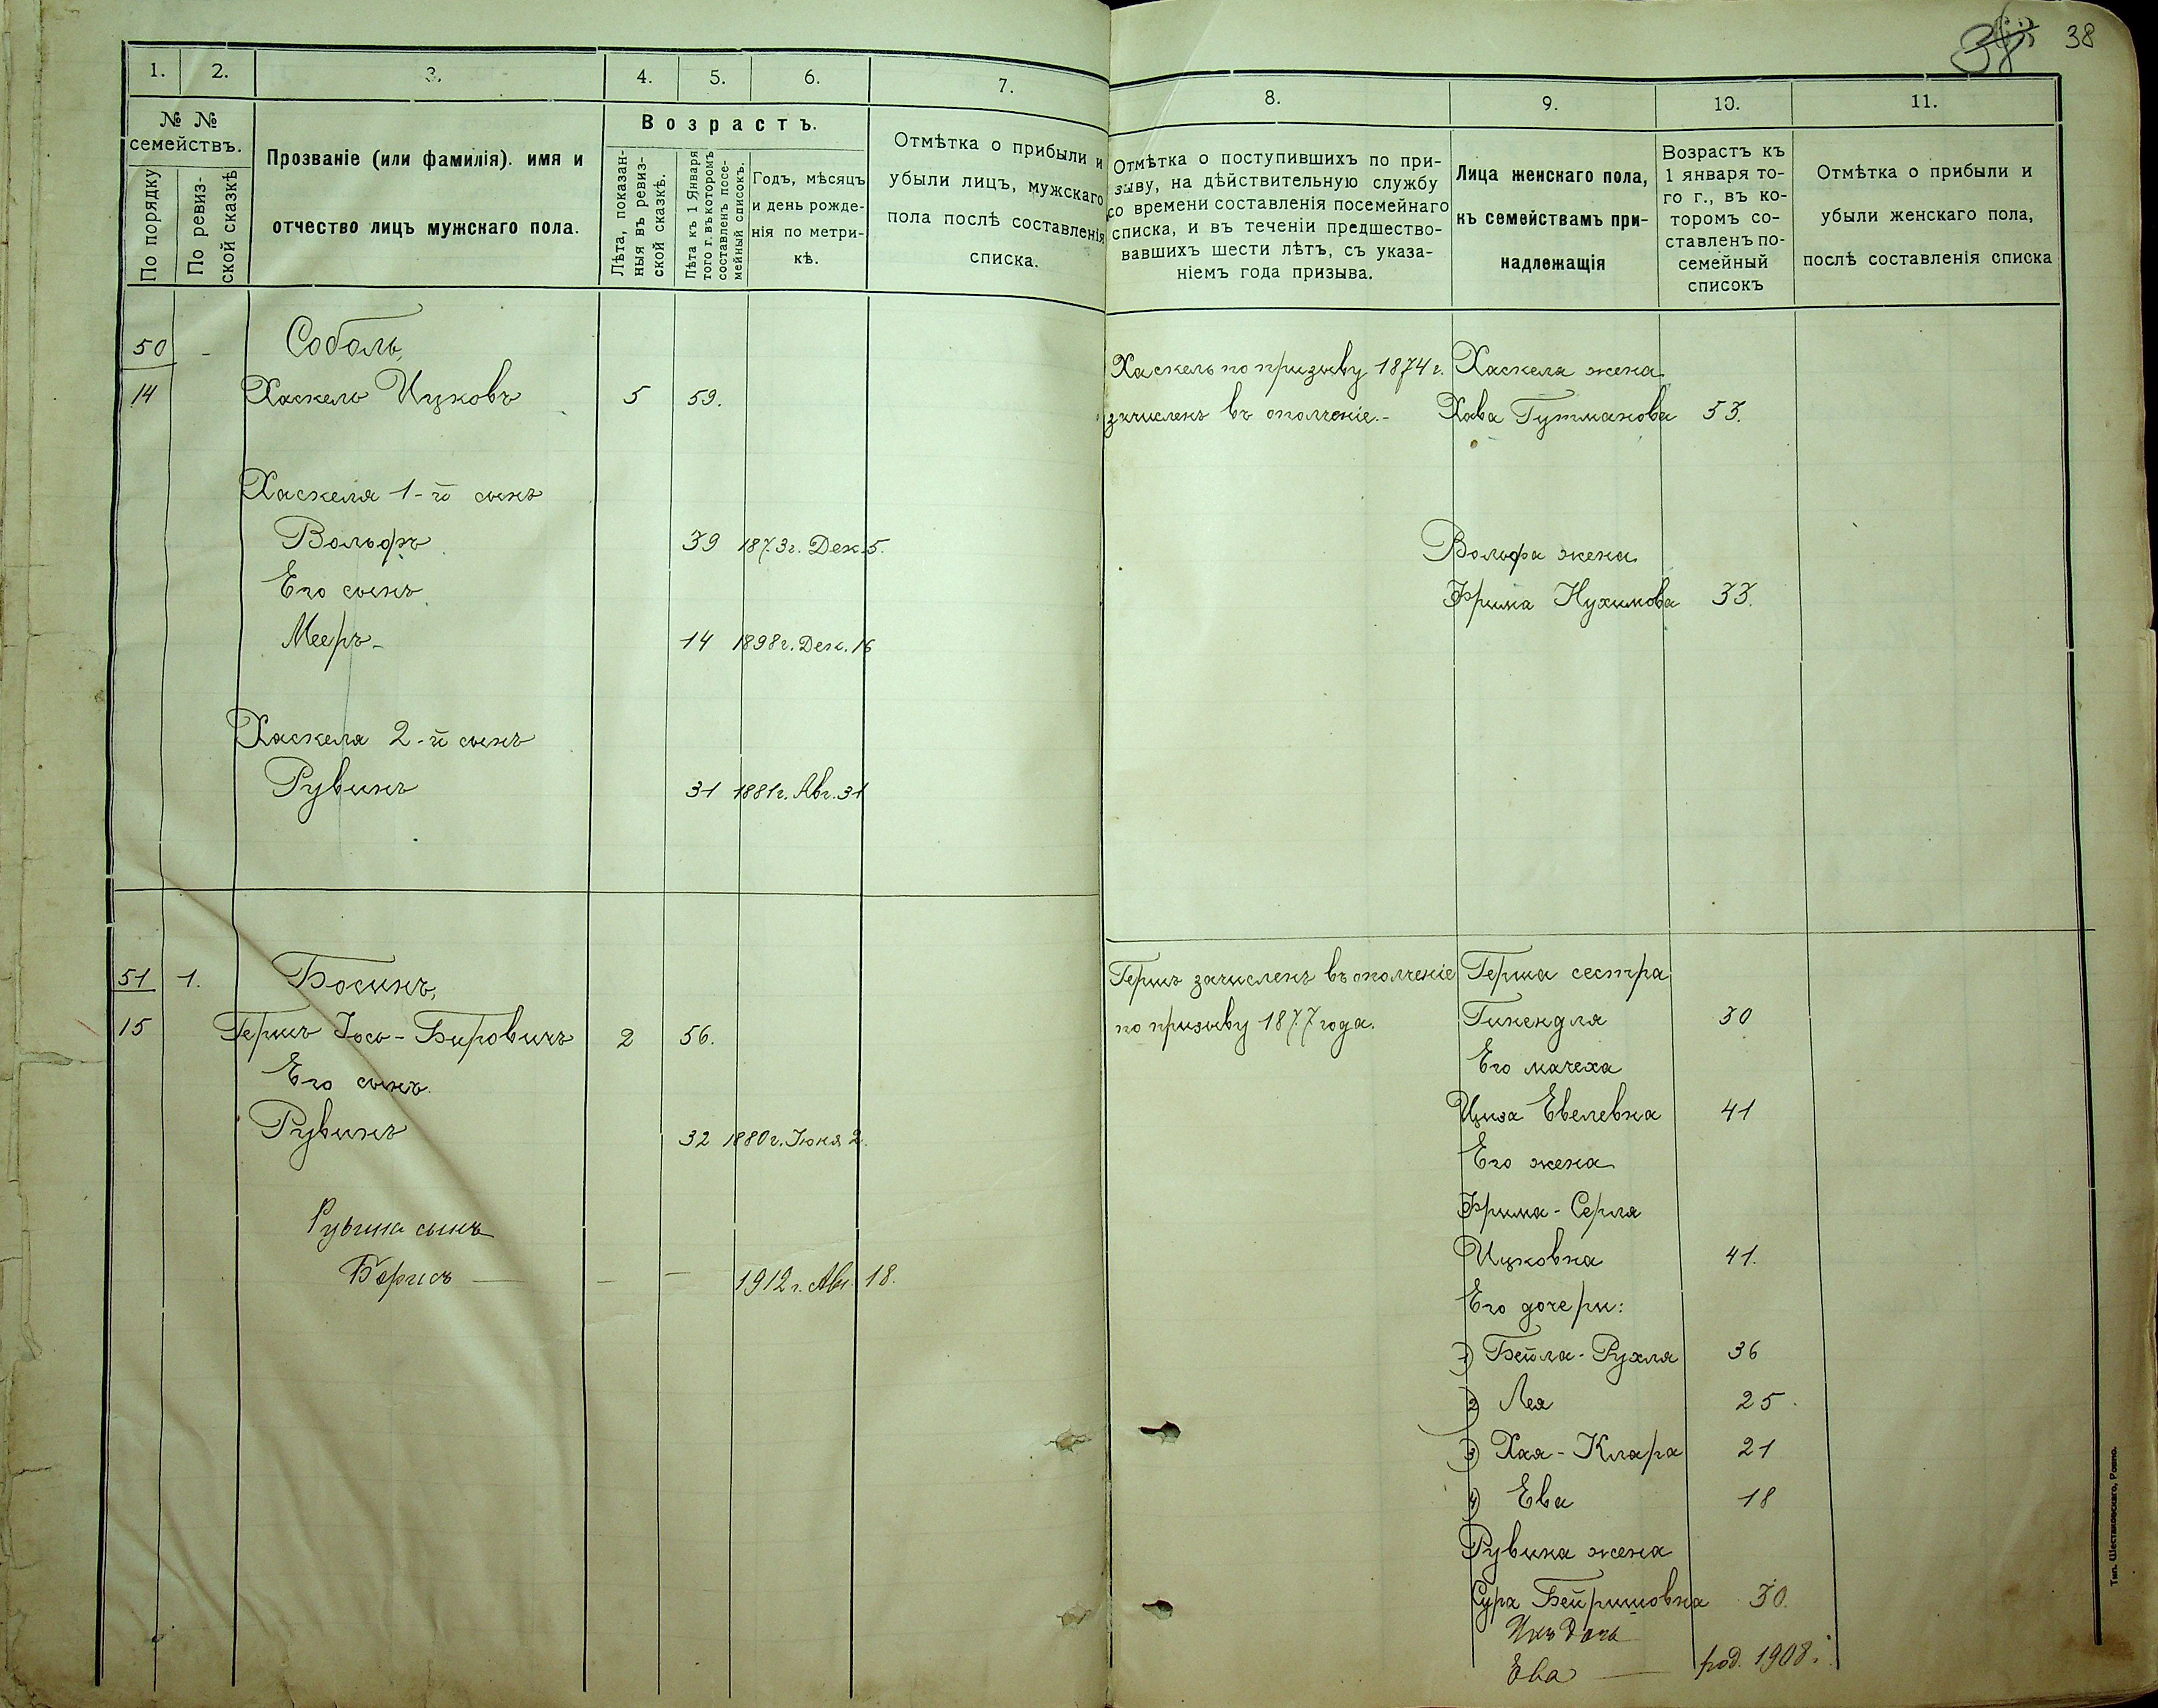 38 38
1. 2. 3. 4. 5. 6. 7.
№ № семействъ.
По порядку
По ревизской сказкѣ
Прозваніе (или фамилія). имя и
отчество лицъ мужскаго пола.
Возрастъ.
Лѣта, показан-
ныя въ ревиз-
ской сказкѣ.
Лѣта къ 1 Января
того г. въ которомъ
составленъ посе-
мейный списокъ.
Годъ, мѣсяцъ
и день рожде-
нія по метри-
кѣ.
Отмѣтка о прибыли и
убыли лицъ, мужскаго
пола послѣ составленія
списка.
8. 9. 10. 11.
Отмѣтка о поступившихъ по при-
зыву, на дѣйствительную службу
со времени составленія посемейнаго
списка, и въ теченіи предшество-
вавшихъ шести лѣтъ, съ указа-
ніемъ года призыва.
Лица женскаго пола,
къ семействамъ при-
надлежащія
Возрастъ къ
1 января то-
го г., въ ко-
торомъ со-
ставленъ по-
семейный
списокъ
Отмѣтка о прибыли и
убыли женскаго пола,
послѣ составленія списка
50 - Соболь,
14 Хаскель Ицковъ 5 59.
Хаскеля 1-й сынъ
Вольфъ 39 1873г. Дек. 5.
Его сынъ
Мееръ- 14 1898г. Дек. 16
Хаскеля 2-й сынъ
Рувинъ 31 1881г. Авг. 31
Хаскель по призыву 1874 г.
зачисленъ въ ополченіе.-
Хаскеля жена
Хава Гутманова 53.
Вольфа жена
Фрима Нухимова 33.
51 1. Босинъ,
15 Гершъ Іось-Беровичъ 2 56.
Его сынъ
Рувинъ 32 1880г. Іюня 2.
Рувина сынъ
Борисъ — — — 1912 г. Авг. 18.
Гершъ зачисленъ въ ополченіе
по призыву 1877 года.
Герша сестра
Гинендля 30
Его мачеха
Циза Евелевна 41
Его жена
Фрима-Серля
Ицковна 41.
Его дочери:
1) Бейла-Рухля 36
2) Лея 25.
3) Хая-Клара 21
4) Ева 18
Рувина жена
Сура Бейришовна 30.
Ихъ дочь
Ева — род. 1908.
Тип. Шестаковскаго, Ровно.